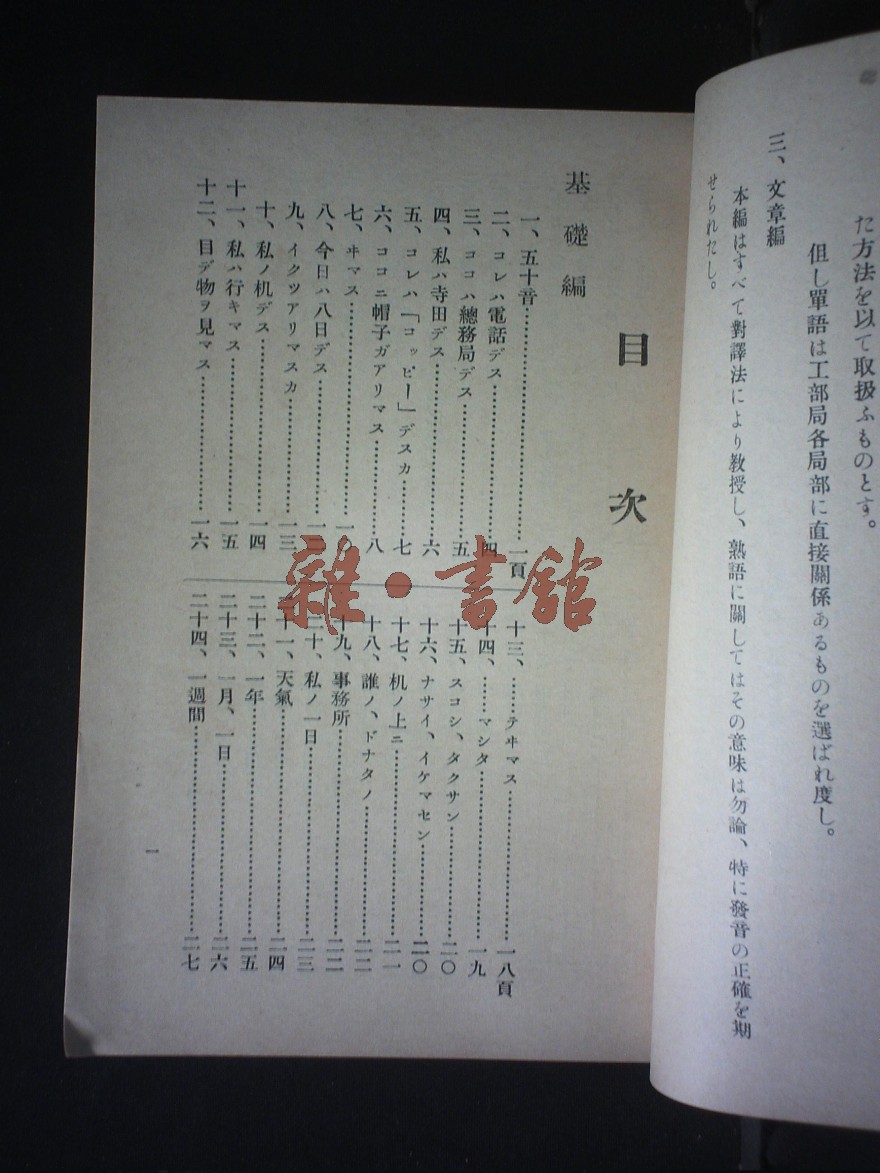 た方法を以て取扱ふものとす。
但し單語は工部局各局部に直接關係あるものを選ばれ度し。
三、文章編
本編はすべて對譯法により教授し、熟語に關してはその意味は勿論、特に發音の正確を期
せられたし。
目次
基礎編
一、五十音…………一頁
二、コレハ電話デス…………四
三、ココハ總務局デス…………五
四、私ハ寺田デス…………六
五、コレハ「コッピー」デスカ…………七
六、ココニ帽子ガアリマス…………八
七、ヰマス…………一〇
八、今日ハ八日デス…………一三
九、イクツアリマスカ…………一三
十、私ノ机デス…………一四
十一、私ハ行キマス…………一五
十二、目デ物ヲ見マス…………一六
十三、……テヰマス…………一八頁
十四、……マシタ…………一九
十五、スコシ、タクサン…………二〇
十六、ナサイ、イケマセン…………二〇
十七、机ノ上ニ…………二一
十八、誰ノ、ドナタノ…………二二
十九、事務所…………二二
二十、私ノ一日…………二三
二十一、天氣…………二四
二十二、一年…………二五
二十三、一月、一日…………二六
二十四、一週間…………二七
一
雜·書館